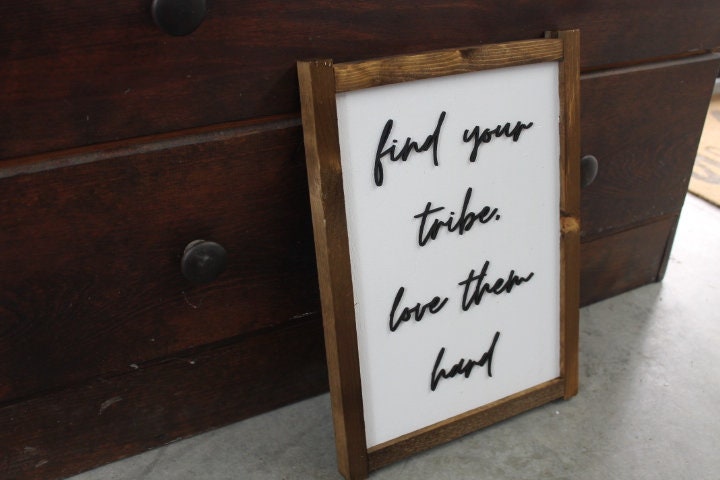 find your
tribe.
love them
hard